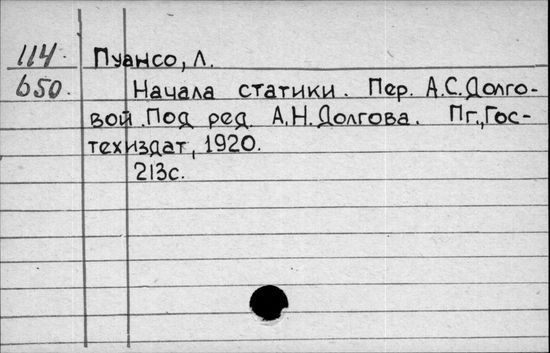 114 Пуансо, Л.
650. Начала статики. Пер. А.С.Долго-
вой. Под ред. А.Н.Долгова. Пг., Гос-
техиздат, 1920.
213с.